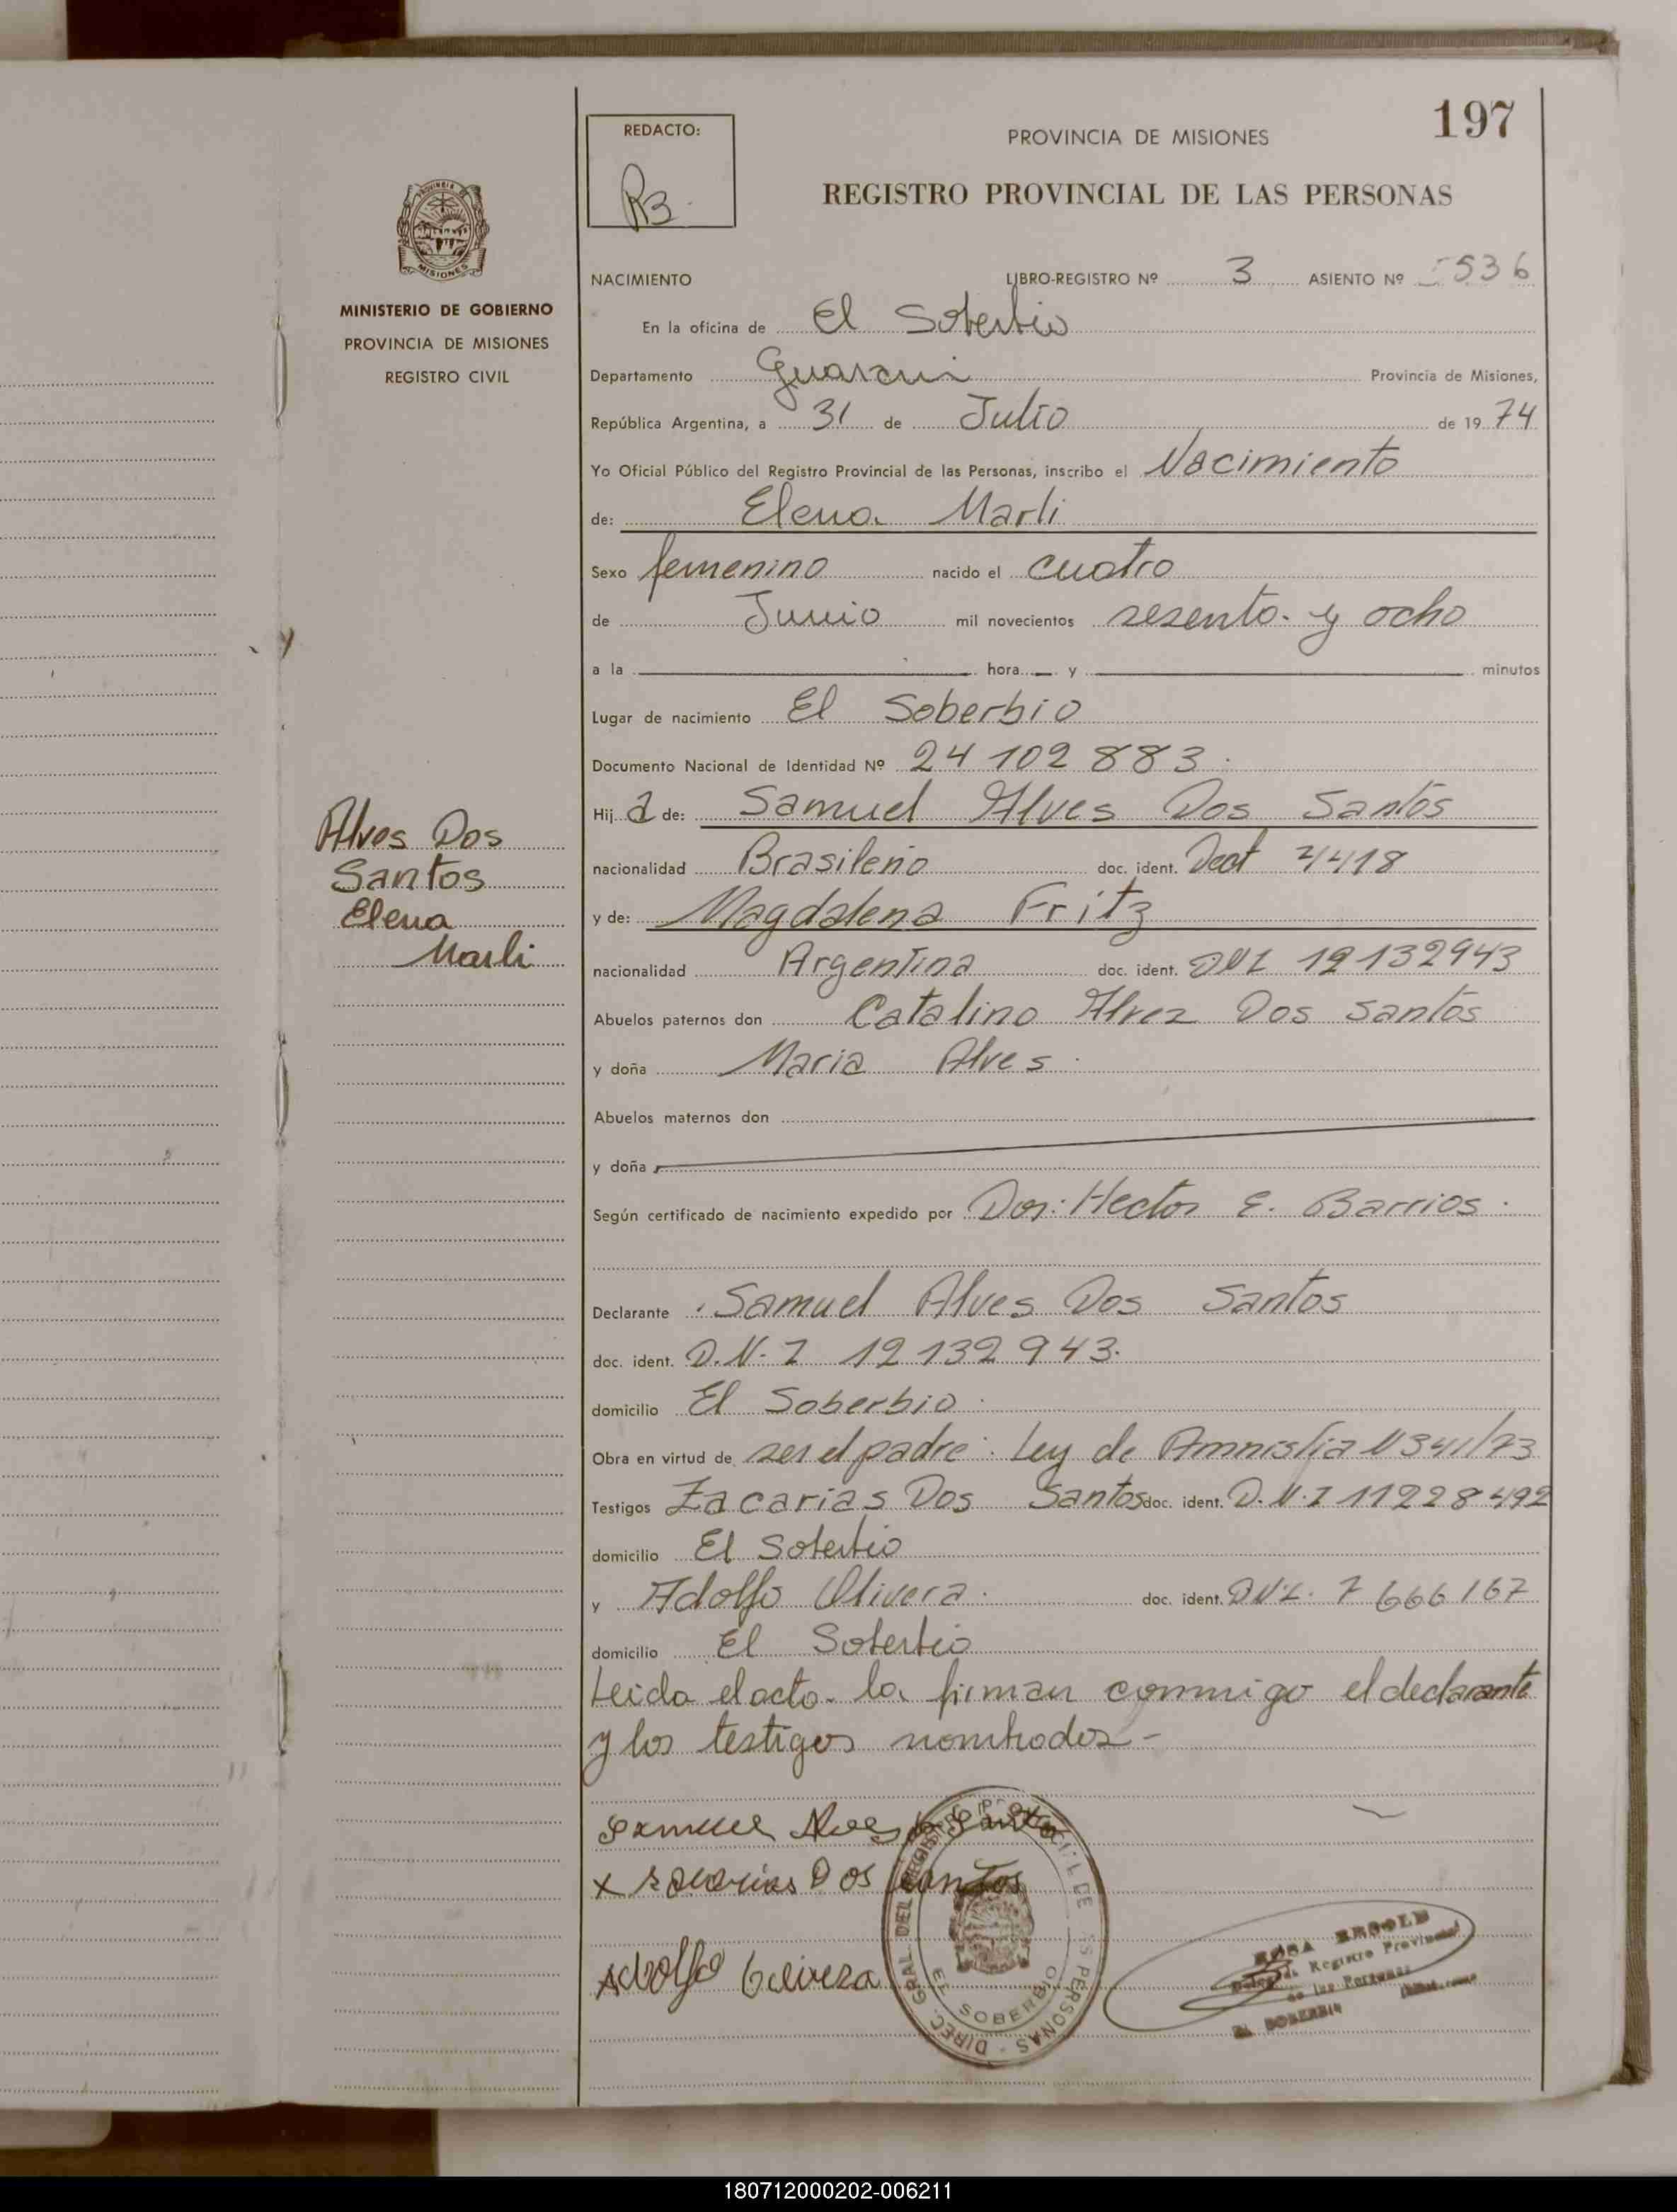 197
REDACTO:
R3
PROVINCIA DE MISIONES
REGISTRO PROVINCIAL DE LAS PERSONAS
MISIONES
MINISTERIO DE GOBIERNO
PROVINCIA DE MISIONES
REGISTRO CIVIL
NACIMIENTO LIBRO-REGISTRO Nº 3 ASIENTO Nº 536
En la oficina de El Soberbio
Departamento Guarani Provincia de Misiones,
República Argentina, a 31 de Julio de 1974
Yo Oficial Público del Registro Provincial de las Personas, inscribo el Nacimiento
de: Elena Marli
Sexo femenino nacido el cuatro
de Junio mil novecientos sesenta y ocho
a la hora y minutos
Lugar de nacimiento El Soberbio
Documento Nacional de Identidad Nº 24 102 883
Hija de: Samuel Alves Dos Santos
nacionalidad Brasileño doc. ident. 4418
y de: Magdalena Fritz
nacionalidad Argentina doc. ident. DNI 12132943
Abuelos paternos don Catalino Alvez Dos Santos
y doña Maria Alves
Abuelos maternos don
y doña
Según certificado de nacimiento expedido por Hector E. Barrios
Declarante Samuel Alves Dos Santos
doc. ident. D.N.I 12 132 943.
domicilio El Soberbio
Obra en virtud de ser el padre: Ley de Amnistia
Testigos Zacarias Dos Santos doc. ident. D.N.I 11228492
domicilio El Soberbio
y Adolfo Olivera doc. ident. DNI. 7 666 167
domicilio El Soberbio
Leida el acta la firman conmigo el declarante
y los testigos nombrados -
Alves Dos
Santos
Elena
Marli
Samuel Alves do Santo
x Zacarias Dos Santos
Adolfo Olivera
DIREC. GRAL. DEL REGISTRO PROVINCIAL DE LAS PERSONAS
EL SOBERBIO
Registro Provincial
de las Personas
EL SOBERBIO
180712000202-006211